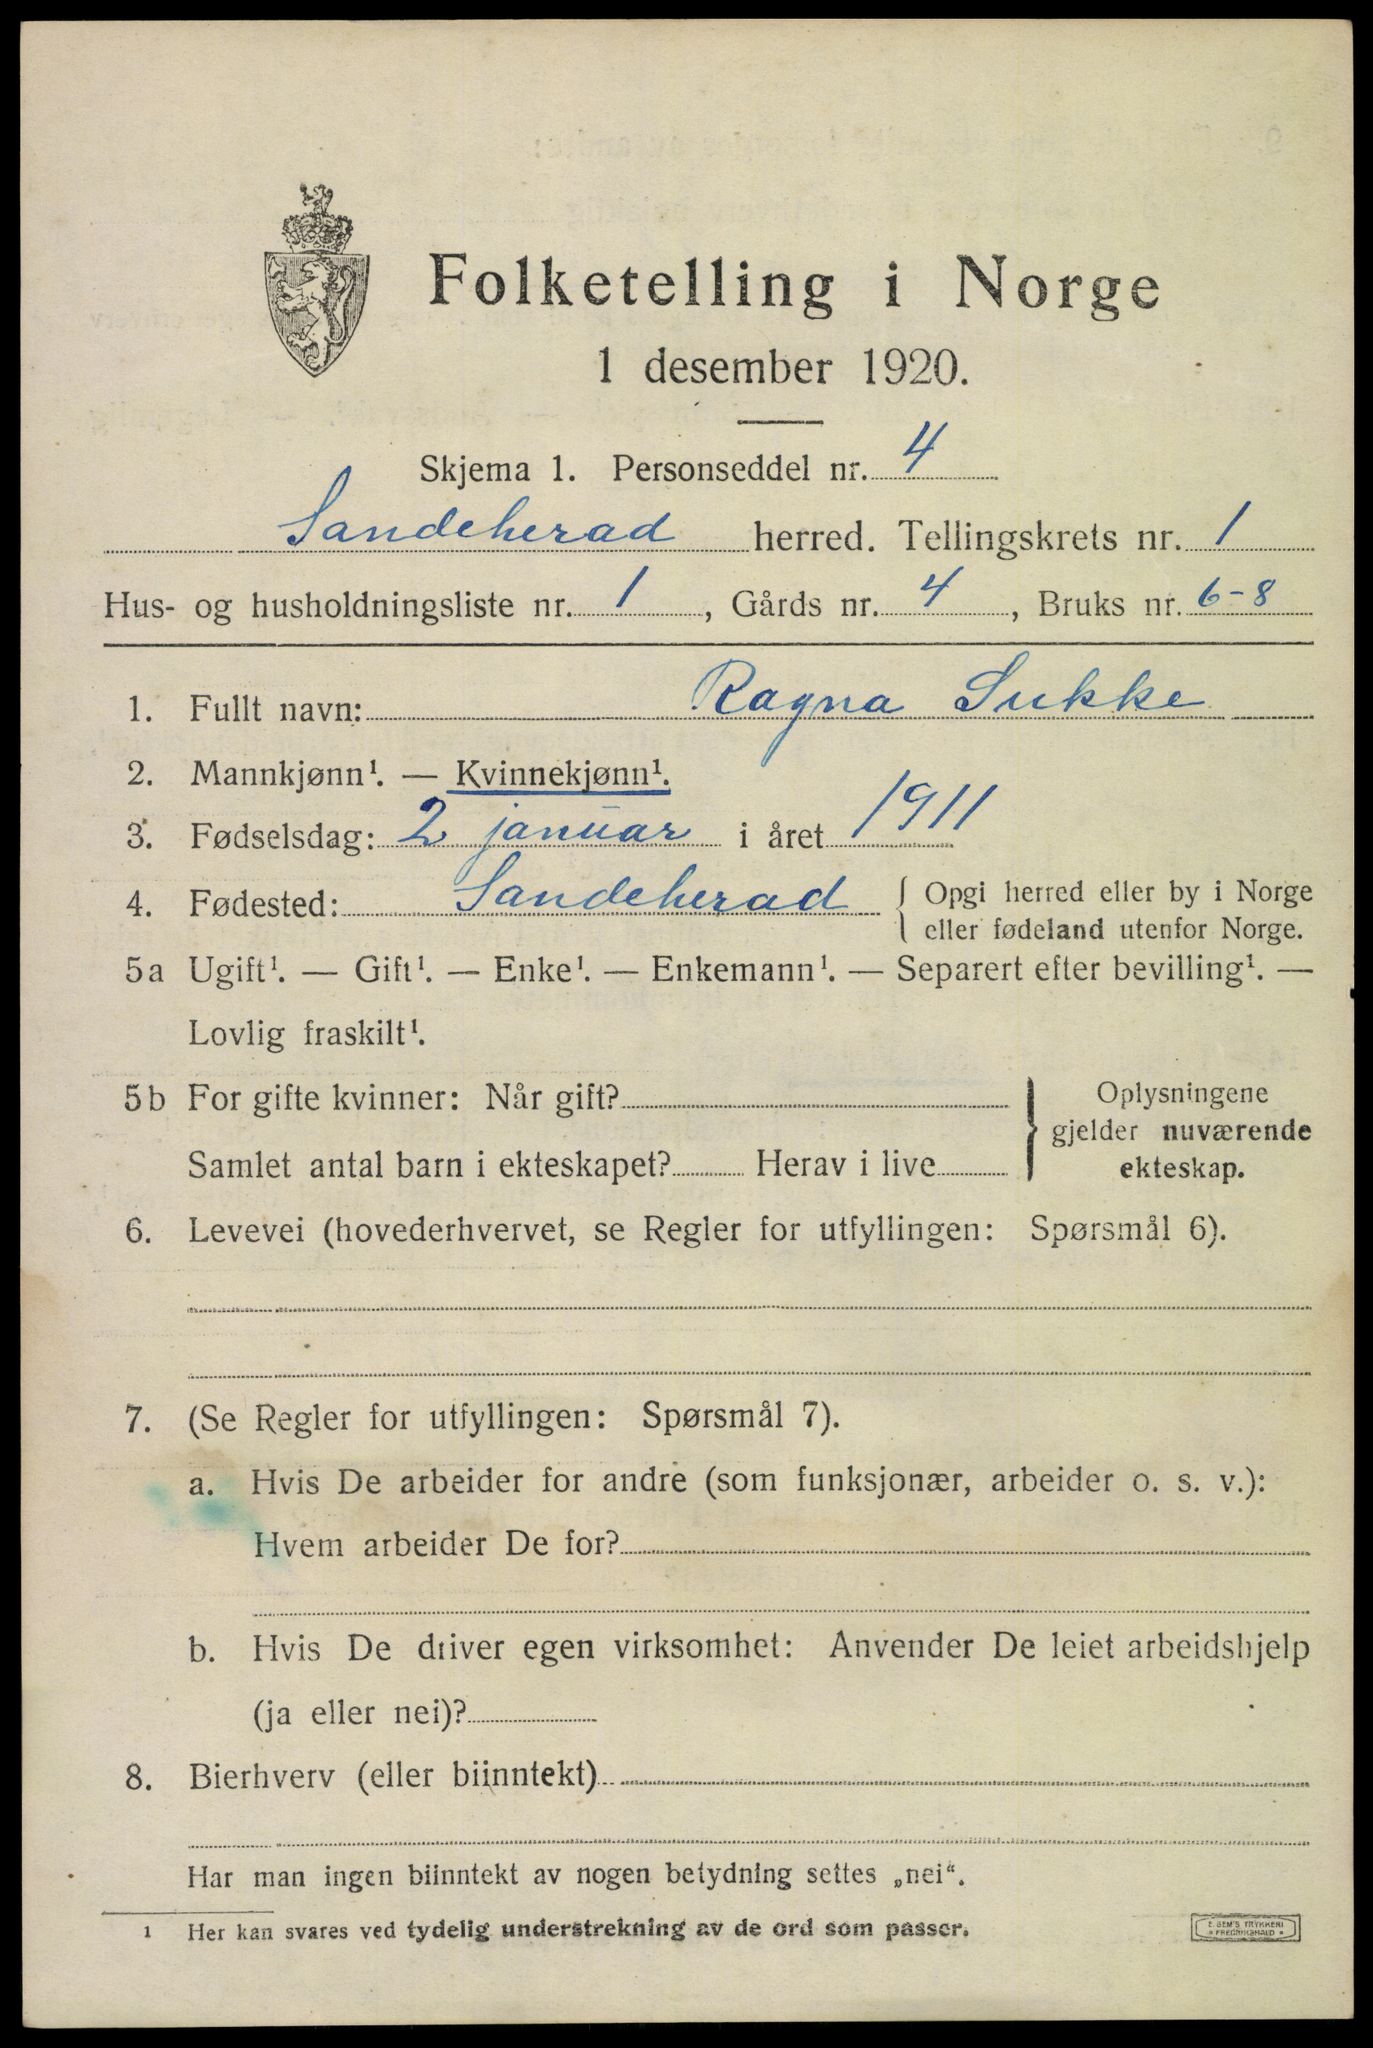 Folketelling i Norge
1 desember 1920.
Skjema 1. Personseddel nr. 4
Sandeherad herred. Tellingskrets nr. 1
Hus- og husholdningsliste nr. 1, Gårds nr. 4, Bruks nr. 6-8
1. Fullt navn: Ragna Sukke
2. Mannkjønn¹. — Kvinnekjønn¹.
3. Fødselsdag: 2 januar i året 1911
4. Fødested: Sandeherad { Opgi herred eller by i Norge
eller fødeland utenfor Norge.
5a Ugift¹. — Gift¹. — Enke¹. — Enkemann¹. — Separert efter bevilling¹. —
Lovlig fraskilt¹.
5b For gifte kvinner: Når gift?
Samlet antal barn i ekteskapet? Herav i live
} Oplysningene
gjelder nuværende
ekteskap.
6. Levevei (hovederhvervet, se Regler for utfyllingen: Spørsmål 6).
7. (Se Regler for utfyllingen: Spørsmål 7).
a. Hvis De arbeider for andre (som funksjonær, arbeider o. s. v.):
Hvem arbeider De for?
b. Hvis De driver egen virksomhet: Anvender De leiet arbeidshjelp
(ja eller nei)?
8. Bierhverv (eller biinntekt)
Har man ingen biinntekt av nogen betydning settes „nei“.
1 Her kan svares ved tydelig understrekning av de ord som passer.
E. SEM'S TRYKKERI
* FREDRIKSHALD *